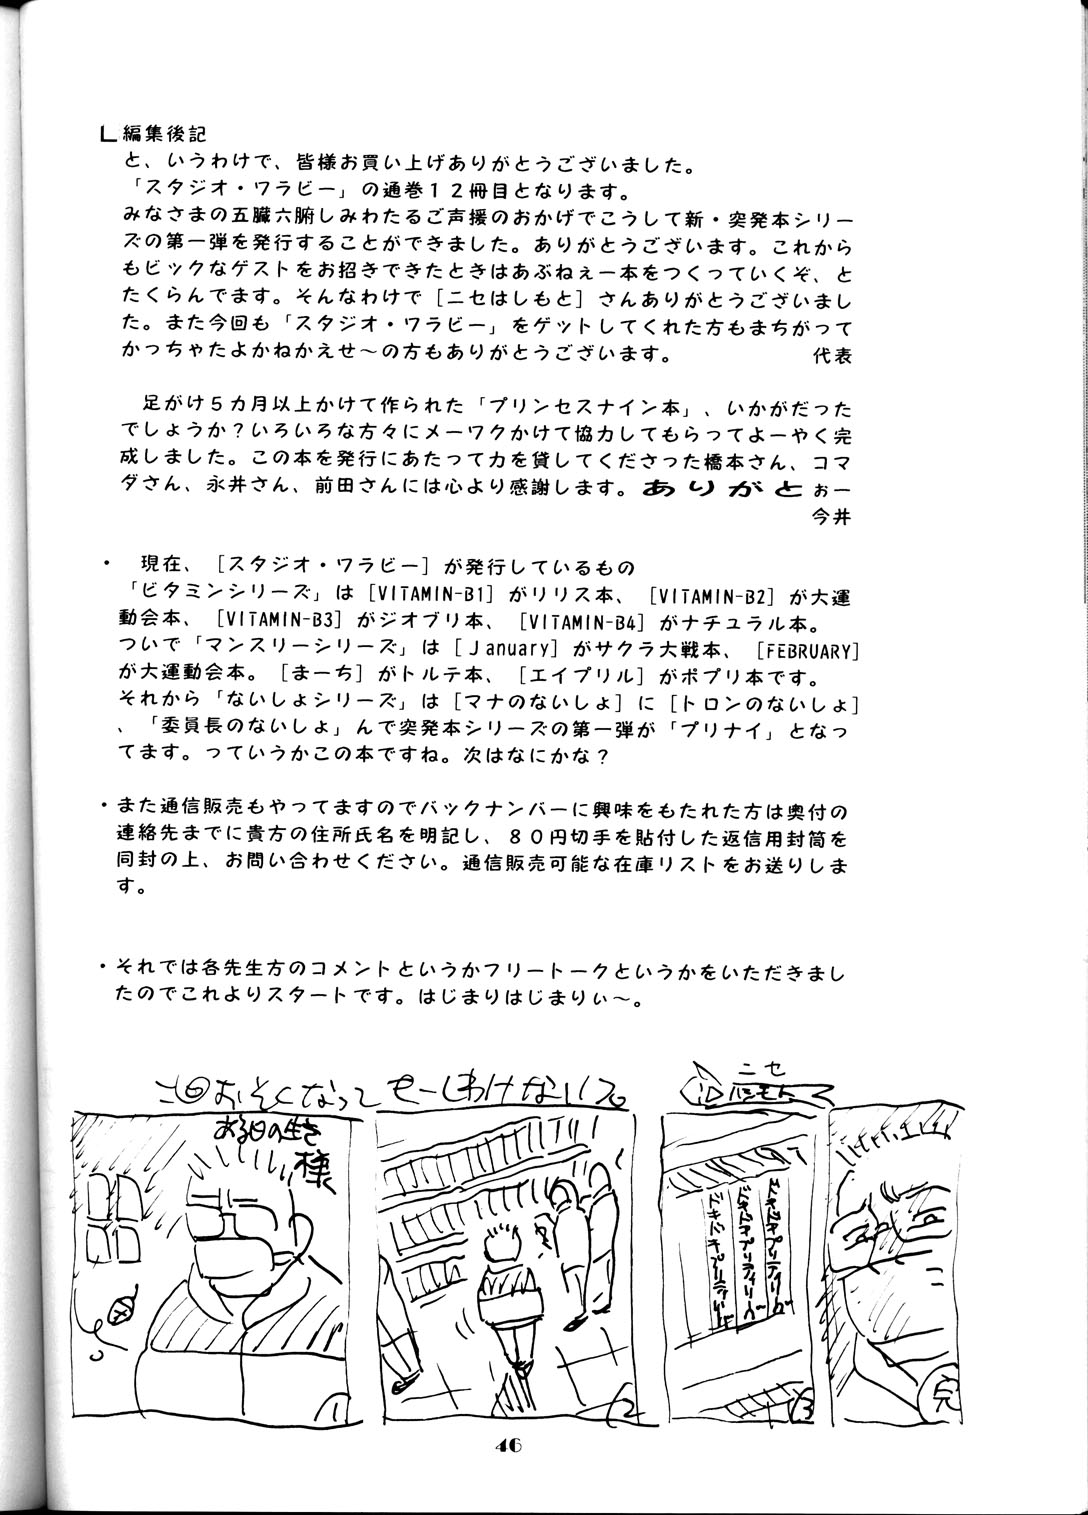 編集後記
と、いうわけで、皆様お買い上げありがとうございました。
「スタジオ・ワラビー」の通巻12冊目となります。
みなさまの五臓六腑しみわたるご声援のおかげでこうして新・突発本シリー
ズの第一弾を発行することができました。ありがとうございます。これから
もビックなゲストをお招きできたときはあぶねぇー本をつくっていくぞ、と
たくらんでます。そんなわけで[ニセはしもと]さんありがとうございまし
た。また今回も「スタジオ・ワラビー」をゲットしてくれた方もまちがって
かっちゃたよかねかえせ～の方もありがとうございます。 代表
足がけ5カ月以上かけて作られた「プリンセスナイン本」、いかがだった
でしょうか?いろいろな方々にメーワクかけて協力してもらってよーやく完
成しました。この本を発行にあたって力を貸してくださった橋本さん、コマ
ダさん、永井さん、前田さんには心より感謝します。ありがとぉー
今井
・ 現在、[スタジオ・ワラビー]が発行しているもの
「ビタミンシリーズ」は[VITAMIN-B1]がリリス本、[VITAMIN-B2]が大運
動会本、[VITAMIN-B3]がジオブリ本、[VITAMIN-B4]がナチュラル本。
ついで「マンスリーシリーズ」は[January]がサクラ大戦本、[FEBRUARY]
が大運動会本。[まーち]がトルテ本、[エイプリル]がポプリ本です。
それから「ないしょシリーズ」は[マナのないしょ]に[トロンのないしょ]
、「委員長のないしょ」んで突発本シリーズの第一弾が「プリナイ」となっ
てます。っていうかこの本ですね。次はなにかな?
・また通信販売もやってますのでバックナンバーに興味をもたれた方は奥付の
連絡先までに貴方の住所氏名を明記し、80円切手を貼付した返信用封筒を
同封の上、お問い合わせください。通信販売可能な在庫リストをお送りしま
す。
・それでは各先生方のコメントというかフリートークというかをいただきまし
たのでこれよりスタートです。はじまりはじまりぃ～。
ニセ
ハシモト
おそくなって もーしわけないっス。
ある日の生き
様
1
2
3
完
46